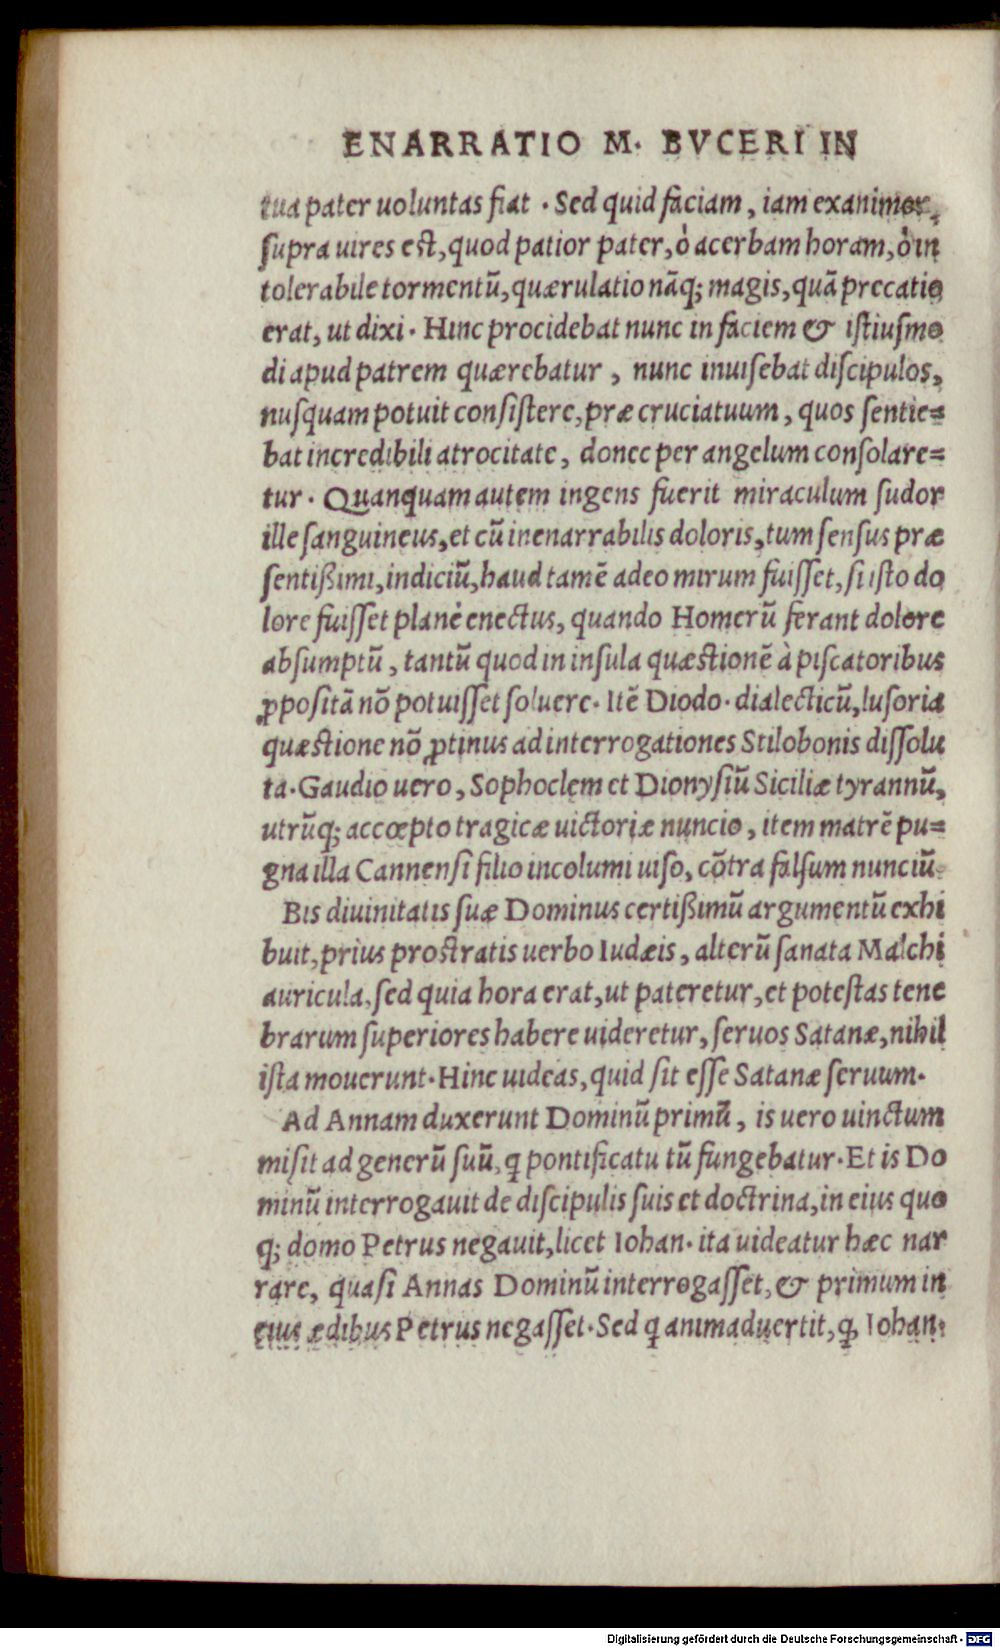 ENARRATIO M. BVCERI IN
tua pater uoluntas fiat . Sed quid faciam, iam exanimor,
supra uires est, quod patior pater, ò acerbam horam, ò in
tolerabile tormentũ, quærulatio nãq; magis, quã precatio
erat, ut dixi. Hinc procidebat nunc in faciem & istiusmo
di apud patrem quærebatur, nunc inuisebat discipulos,
nusquam potuit consistere, præ cruciatuum, quos sentie=
bat incredibili atrocitate, donec per angelum consolare=
tur. Quanquam autem ingens fuerit miraculum sudor
ille sanguineus, et cũ inenarrabilis doloris, tum sensus præ
sentißimi, indiciũ, haud tamẽ adeo mirum fuisset, si isto do
lore fuisset planè enectus, quando Homerũ ferant dolore
absumptũ, tantũ quod in insula quæstionẽ à piscatoribus
ꝓpositã nõ potuisset soluere. Itẽ Diodo. dialecticũ, lusoria
quæstione nõ ꝓtinus ad interrogationes Stilobonis dissolu
ta. Gaudio uero, Sophoclem et Dionysiũ Siciliæ tyrannũ,
utrũq; accœpto tragicæ uictoriæ nuncio, item matrẽ pu=
gna illa Cannensi filio incolumi uiso, cõtra falsum nunciũ.
Bis diuinitatis suæ Dominus certißimũ argumentũ exhi
buit, prius prostratis uerbo Iudæis, alterũ sanata Malchi
auricula, sed quia hora erat, ut pateretur, et potestas tene
brarum superiores habere uideretur, seruos Satanæ, nihil
ista mouerunt. Hinc uideas, quid sit esse Satanæ seruum.
Ad Annam duxerunt Dominũ primũ, is uero uinctum
misit ad generũ suũ, q pontificatu tũ fungebatur. Et is Do
minũ interrogauit de discipulis suis et doctrina, in eius quo
q; domo Petrus negauit, licet Iohan. ita uideatur hæc nar
rare, quasi Annas Dominũ interrogasset, & primum in
eius ædibus Petrus negasset. Sed q animaduertit, q, Iohan.
Digitalisierung gefördert durch die Deutsche Forschungsgemeinschaft - DFG